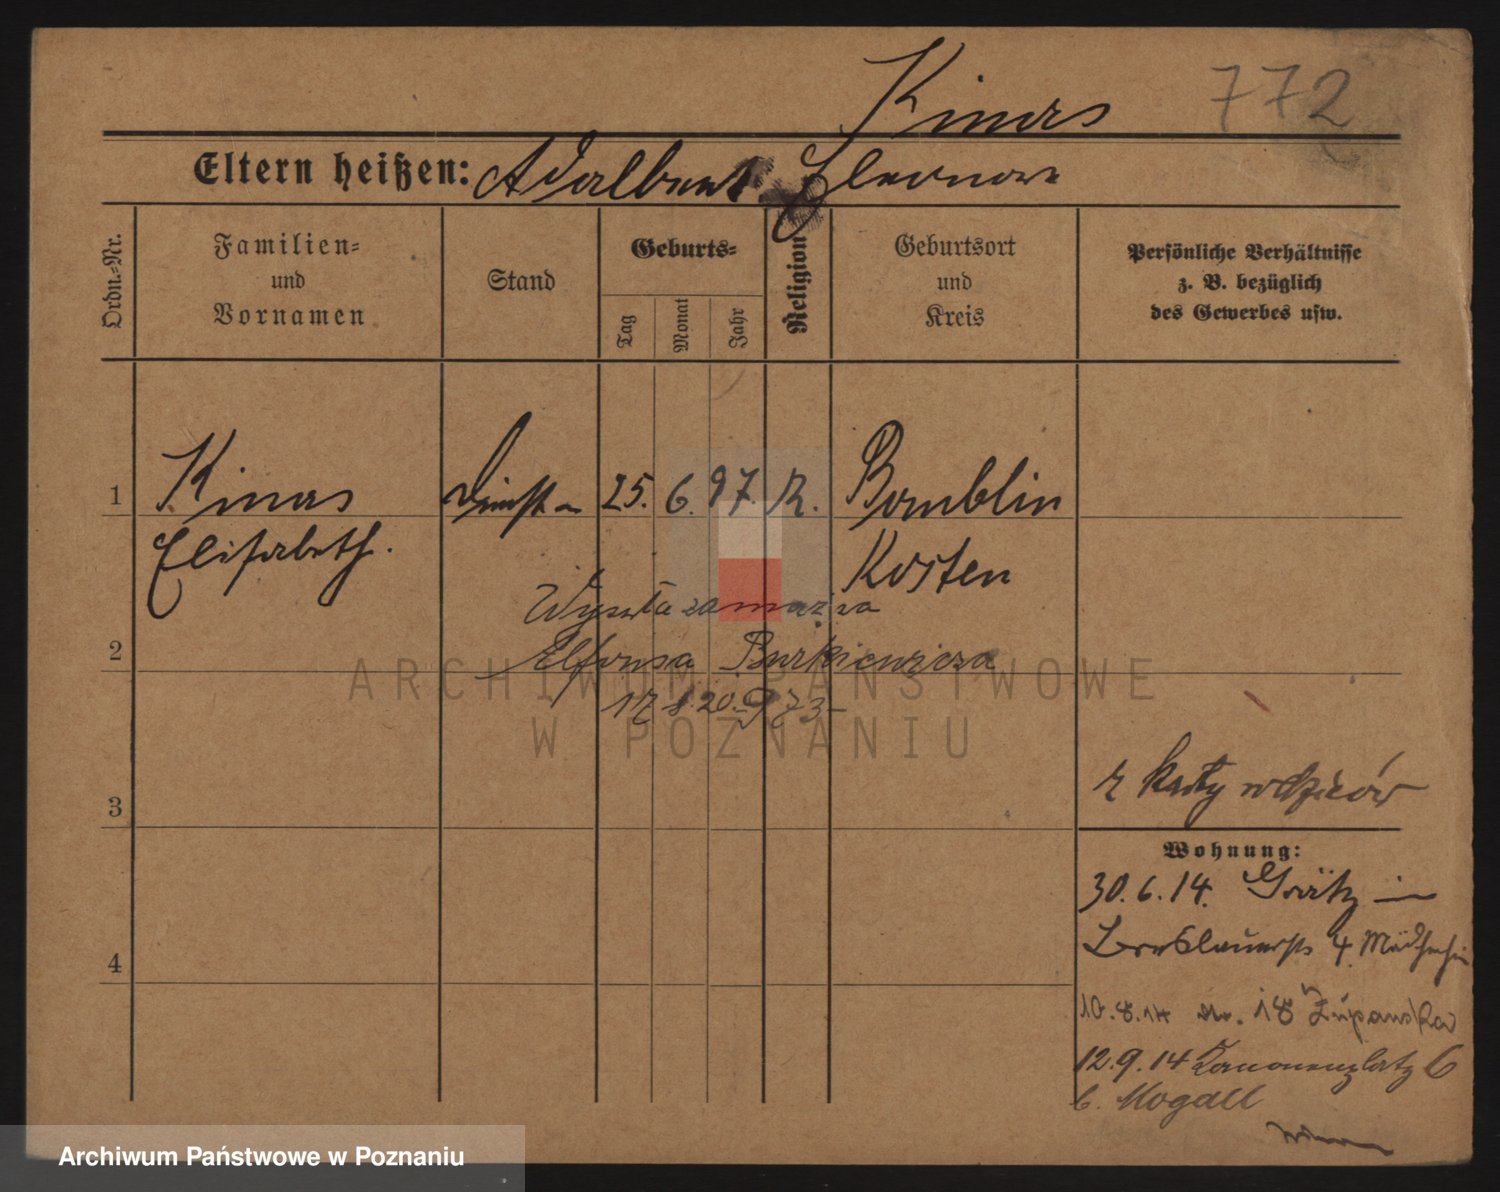 Kinas 772
Eltern heißen: Adalbert Eleonore
Ordn.-Nr.
Familien-
und
Vornamen
Stand
Geburts-
Tag
Monat
Jahr
Religion
Geburtsort
und
Kreis
Persönliche Verhältnisse
z. B. bezüglich
des Gewerbes usw.
1 Kinas 25. 6. 97. R. Bomblin
Elisabeth. Kosten
Wyszła zamąż za
Alfonsa Burkiewicza
2
z karty rodziców
3
Wohnung:
30.6.14. Grätz in
Breslauerstr 4
4
10.8.14 18 Żupanska
12.9.14 Kanonenplatz 6
b. Mogall
ARCHIWUM PAŃSTWOWE
W POZNANIU
Archiwum Państwowe w Poznaniu